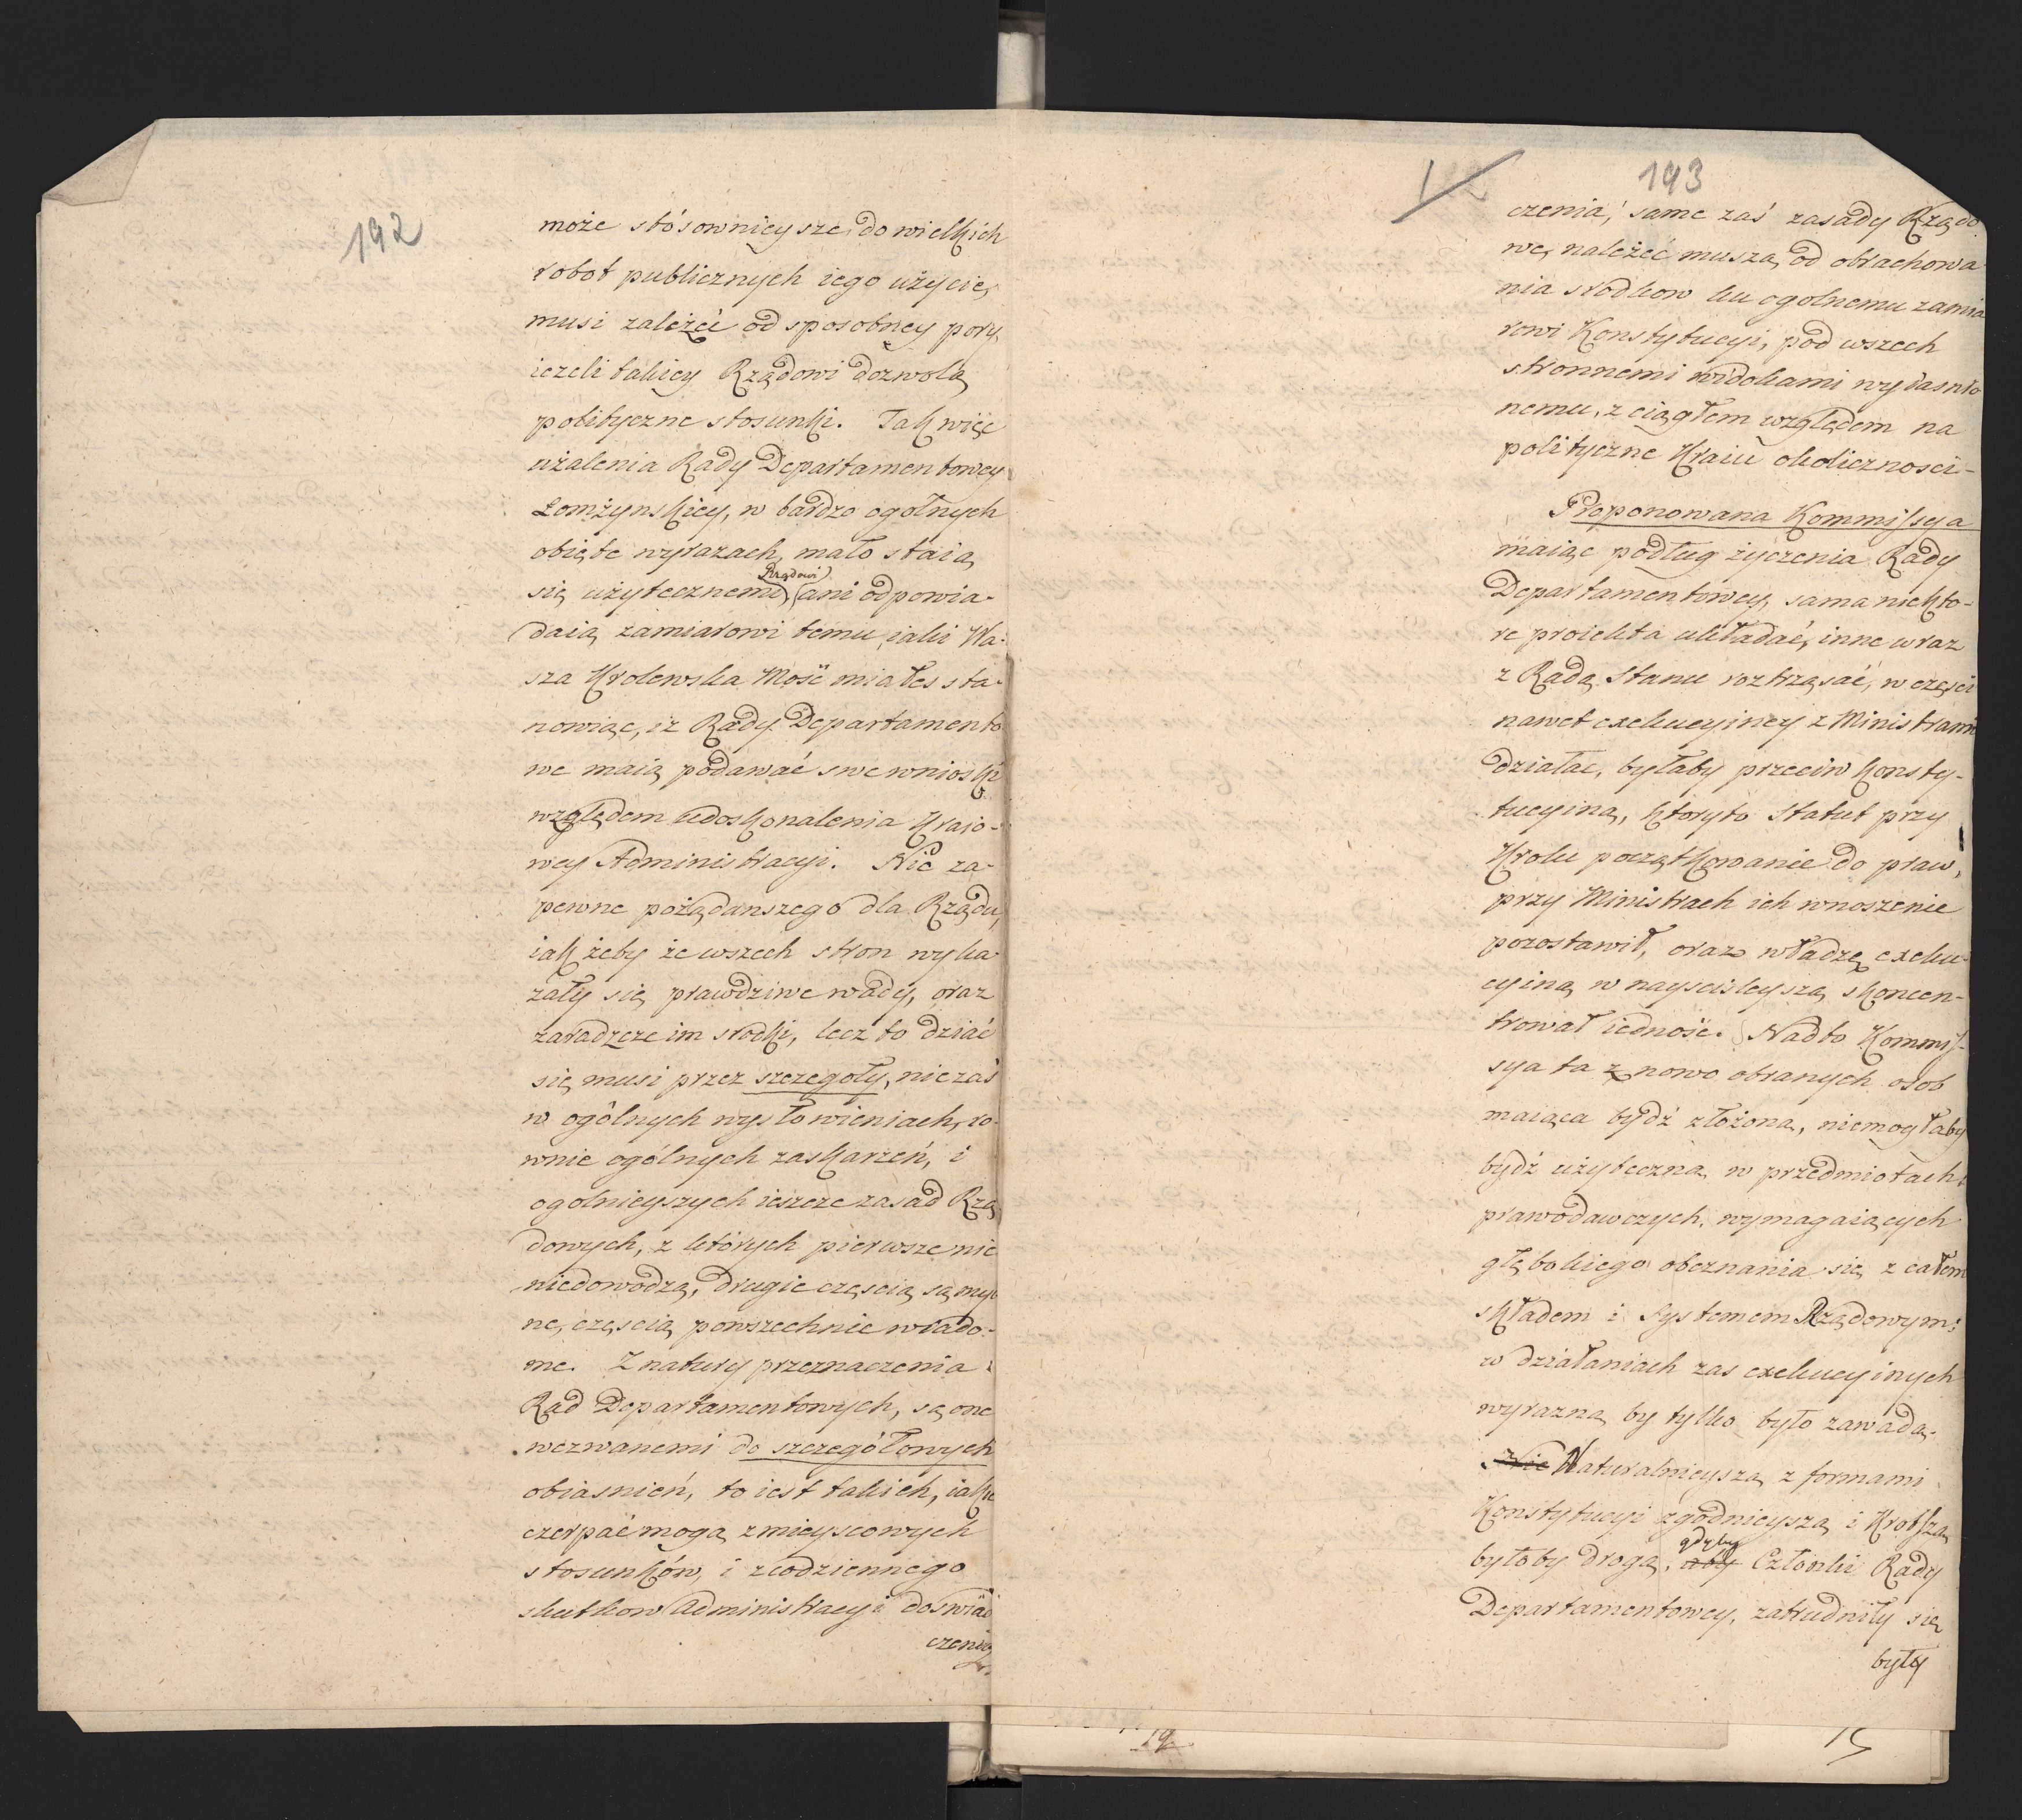 192
może stósownieysze do wielkich
robot publicznych iego użycie,
musi zależéć od sposobney pory,
ieżeli takiey Rządowi dozwolą
polityczne stosunki. Tak więc
użalenia Rady Departamentowey
Łomżynskiey, w bardzo ogolnych
obięte wyrazach, mało staią
się użytecznemi Rządowi ani odpowia-
daią zamiarowi temu, iaki Wa-
sza Krolewska Mość miałeś sta-
nowiąc, iż Rady Departamento
we maią podawać swe wnioski
względem udoskonalenia Kraio-
wey Administracyi. Nic za-
pewne pożądanszego dla Rządu,
iak żeby ze wszech stron wyka
zały się prawdziwe wady, oraz
zaradzcze im srodki, lecz to dziać
się musi przez szczegoły, nie zaś
w ogólnych wysłowieniach, ro-
wnie ogólnych zaskarżeń, i
ogolnieyszych ieszcze zasad Rzą
dowych, z których pierwsze nic
niedowodzą, drugie częscią są myl
ne, częscią powszechnie wiado-
me. Z natury przeznaczenia
Rad Departamentowych, są one
wezwanemi do szczegółowych
obiasnień, to iest takich, iakie
czerpać mogą z mieyscowych
stosunków, i z codziennego
skutkow Administracyi doswiad
czenia
193
czenia, same zaś zasady Rządo
we, należeć muszą od obrachowa
nia srodkow ku ogolnemu zamia
rowi Konstytucyi, pod wszech
stronnemi widokami wyiasnio
nemu, z ciągłem względem na
polityczne Kraiu okolicznosci-
Proponowana Kommissya
maiąc podług życzenia Rady
Departamentowey, sama niekto-
re proiekta układać, inne wraz
z Radą Stanu roztrząsać, w częsci
nawet exekucyiney z Ministrami
działać, byłaby przeciw Konsty-
tucyiną, ktoryto Statut przy
Krolu początkowanie do praw,
przy Ministrach ich wnoszenie
pozostawił, oraz władzę exeku-
cyiną w nayscisleyszą skoncen-
trował iedność. Nadto Kommis-
sya ta z nowo obranych osob
maiąca bydź złożona, niemogłaby
bydź użyteczna w przedmiotach
prawodawczych, wymagaiących
głębokiego obeznania się z całem
składem i systemem Rządowym:
w działaniach zas exekucyinych
wyrazną by tylko było zawadą.
Nie Naturalnieyszą z formami
Konstytucyi zgodnieyszą i Krotszą
byłoby drogą, aby gdyby Członki Rady
Departamentowey, zatrudniły się
były
19
15